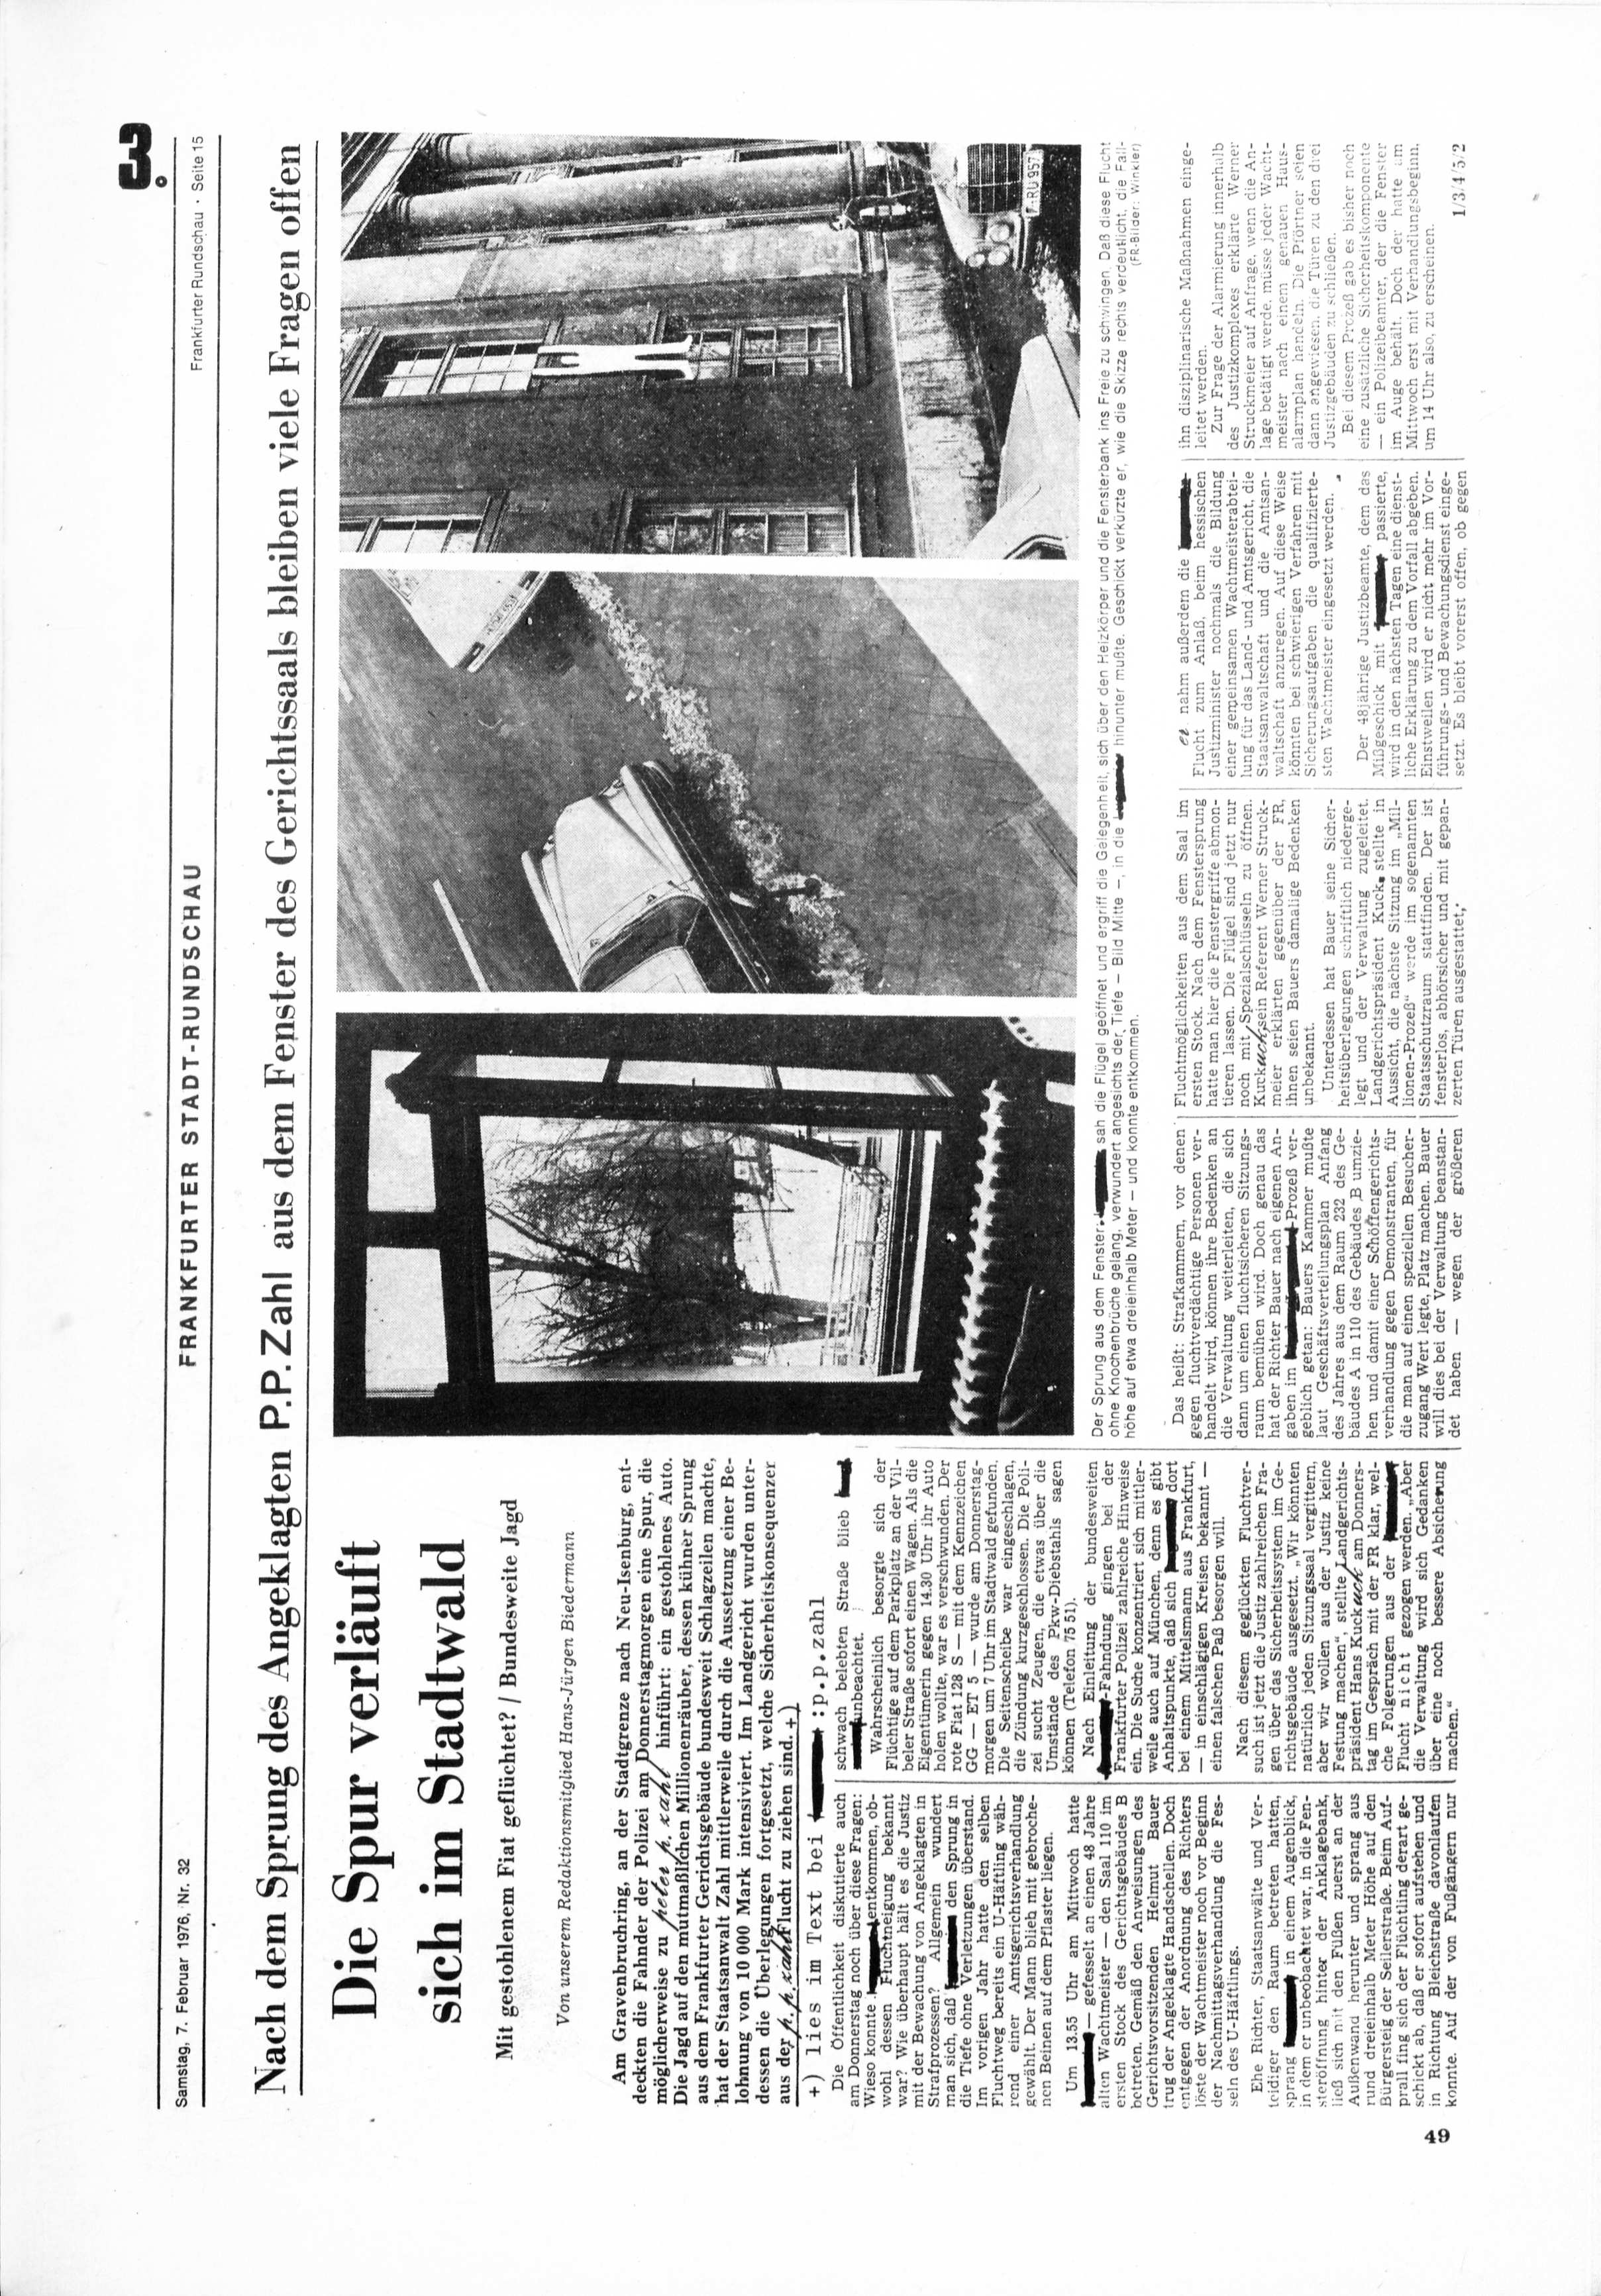 3.
Samstag, 7. Februar 1976, Nr. 32
FRANKFURTER STADT-RUNDSCHAU
Frankfurter Rundschau · Seite 15
Nach dem Sprung des Angeklagten P.P.Zahl aus dem Fenster des Gerichtssaals bleiben viele Fragen offen
Die Spur verläuft
sich im Stadtwald
Mit gestohlenem Fiat geflüchtet? / Bundesweite Jagd
Von unserem Redaktionsmitglied Hans-Jürgen Biedermann
Am Gravenbruchring, an der Stadtgrenze nach Neu-Isenburg, ent-
deckten die Fahnder der Polizei am Donnerstagmorgen eine Spur, die
möglicherweise zu peter p. zahl hinführt: ein gestohlenes Auto.
Die Jagd auf den mutmaßlichen Millionenräuber, dessen kühner Sprung
aus dem Frankfurter Gerichtsgebäude bundesweit Schlagzeilen machte,
hat der Staatsanwalt Zahl mittlerweile durch die Aussetzung einer Be-
lohnung von 10 000 Mark intensiviert. Im Landgericht wurden unter-
dessen die Überlegungen fortgesetzt, welche Sicherheitskonsequenzen
aus der p.p.zahl Flucht zu ziehen sind. +)
+) lies im Text bei :p.p.zahl
Die Öffentlichkeit diskutierte auch
am Donnerstag noch über diese Fragen:
Wieso konnte entkommen, ob-
wohl dessen Fluchtneigung bekannt
war? Wie überhaupt hält es die Justiz
mit der Bewachung von Angeklagten in
Strafprozessen? Allgemein wundert
man sich, daß den Sprung in
die Tiefe ohne Verletzungen überstand.
Im vorigen Jahr hatte den selben
Fluchtweg bereits ein U-Häftling wäh-
rend einer Amtsgerichtsverhandlung
gewählt. Der Mann blieb mit gebroche-
nen Beinen auf dem Pflaster liegen.
Um 13.55 Uhr am Mittwoch hatte
— gefesselt an einen 48 Jahre
alten Wachtmeister — den Saal 110 im
ersten Stock des Gerichtsgebäudes B
betreten. Gemäß den Anweisungen des
Gerichtsvorsitzenden Helmut Bauer
trug der Angeklagte Handschellen. Doch
entgegen der Anordnung des Richters
löste der Wachtmeister noch vor Beginn
der Nachmittagsverhandlung die Fes-
seln des U-Häftlings.
Ehe Richter, Staatsanwälte und Ver-
teidiger den Raum betreten hatten,
sprang in einem Augenblick,
in dem er unbeobachtet war, in die Fen-
steröffnung hinter der Anklagebank,
ließ sich mit den Füßen zuerst an der
Außenwand herunter und sprang aus
rund dreieinhalb Meter Höhe auf den
Bürgersteig der Seilerstraße. Beim Auf-
prall fing sich der Flüchtling derart ge-
schickt ab, daß er sofort aufstehen und
in Richtung Bleichstraße davonlaufen
konnte. Auf der von Fußgängern nur
schwach belebten Straße blieb
unbeachtet.
Wahrscheinlich besorgte sich der
Flüchtige auf dem Parkplatz an der Vil-
beler Straße sofort einen Wagen. Als die
Eigentümerin gegen 14.30 Uhr ihr Auto
holen wollte, war es verschwunden. Der
rote Fiat 128 S — mit dem Kennzeichen
GG — ET 5 — wurde am Donnerstag-
morgen um 7 Uhr im Stadtwald gefunden.
Die Seitenscheibe war eingeschlagen,
die Zündung kurzgeschlossen. Die Poli-
zei sucht Zeugen, die etwas über die
Umstände des Pkw-Diebstahls sagen
können (Telefon 75 51).
Nach Einleitung der bundesweiten
-Fahndung gingen bei der
Frankfurter Polizei zahlreiche Hinweise
ein. Die Suche konzentriert sich mittler-
weile auch auf München, denn es gibt
Anhaltspunkte, daß sich dort
bei einem Mittelsmann aus Frankfurt,
— in einschlägigen Kreisen bekannt —
einen falschen Paß besorgen will.
Nach diesem geglückten Fluchtver-
such ist jetzt die Justiz zahlreichen Fra-
gen über das Sicherheitssystem im Ge-
richtsgebäude ausgesetzt. „Wir könnten
natürlich jeden Sitzungssaal vergittern,
aber wir wollen aus der Justiz keine
Festung machen“, stellte Landgerichts-
präsident Hans Kuckuck am Donners-
tag im Gespräch mit der FR klar, wel-
che Folgerungen aus der
Flucht nicht gezogen werden. „Aber
die Verwaltung wird sich Gedanken
über eine noch bessere Absicherung
machen.“
Der Sprung aus dem Fenster: sah die Flügel geöffnet und ergriff die Gelegenheit, sich über den Heizkörper und die Fensterbank ins Freie zu schwingen. Daß diese Flucht
ohne Knochenbrüche gelang, verwundert angesichts der Tiefe — Bild Mitte —, in die hinunter mußte. Geschickt verkürzte er, wie die Skizze rechts verdeutlicht, die Fall-
höhe auf etwa dreieinhalb Meter — und konnte entkommen.
(FR-Bilder: Winkler)
Das heißt: Strafkammern, vor denen
gegen fluchtverdächtige Personen ver-
handelt wird, können ihre Bedenken an
die Verwaltung weiterleiten, die sich
dann um einen fluchtsicheren Sitzungs-
raum bemühen wird. Doch genau das
hat der Richter Bauer nach eigenen An-
gaben im -Prozeß ver-
geblich getan: Bauers Kammer mußte
laut Geschäftsverteilungsplan Anfang
des Jahres aus dem Raum 232 des Ge-
bäudes A in 110 des Gebäudes B umzie-
hen und damit einer Schöffengerichts-
verhandlung gegen Demonstranten, für
die man auf einen speziellen Besucher-
zugang Wert legte, Platz machen. Bauer
will dies bei der Verwaltung beanstan-
det haben — wegen der größeren
Fluchtmöglichkeiten aus dem Saal im
ersten Stock. Nach dem Fenstersprung
hatte man hier die Fenstergriffe abmon-
tieren lassen. Die Flügel sind jetzt nur
noch mit Spezialschlüsseln zu öffnen.
Kuckuck, sein Referent Werner Struck-
meier erklärten gegenüber der FR,
ihnen seien Bauers damalige Bedenken
unbekannt.
Unterdessen hat Bauer seine Sicher-
heitsüberlegungen schriftlich niederge-
legt und der Verwaltung zugeleitet.
Landgerichtspräsident Kuck. stellte in
Aussicht, die nächste Sitzung im „Mil-
lionen-Prozeß“ werde im sogenannten
Staatsschutzraum stattfinden. Der ist
fensterlos, abhörsicher und mit gepan-
zerten Türen ausgestattet.
er nahm außerdem die
Flucht zum Anlaß, beim hessischen
Justizminister nochmals die Bildung
einer gemeinsamen Wachtmeisterabtei-
lung für das Land- und Amtsgericht, die
Staatsanwaltschaft und die Amtsan-
waltschaft anzuregen. Auf diese Weise
könnten bei schwierigen Verfahren mit
Sicherungsaufgaben die qualifizierte-
sten Wachtmeister eingesetzt werden.
Der 48jährige Justizbeamte, dem das
Mißgeschick mit passierte,
wird in den nächsten Tagen eine dienst-
liche Erklärung zu dem Vorfall abgeben.
Einstweilen wird er nicht mehr im Vor-
führungs- und Bewachungsdienst einge-
setzt. Es bleibt vorerst offen, ob gegen
ihn disziplinarische Maßnahmen einge-
leitet werden.
Zur Frage der Alarmierung innerhalb
des Justizkomplexes erklärte Werner
Struckmeier auf Anfrage, wenn die An-
lage betätigt werde, müsse jeder Wacht-
meister nach einem genauen Haus-
alarmplan handeln. Die Pförtner seien
dann angewiesen, die Türen zu den drei
Justizgebäuden zu schließen.
Bei diesem Prozeß gab es bisher noch
eine zusätzliche Sicherheitskomponente
— ein Polizeibeamter, der die Fenster
im Auge behält. Doch der hatte am
Mittwoch erst mit Verhandlungsbeginn,
um 14 Uhr also, zu erscheinen.
1/3/4/5/2
49